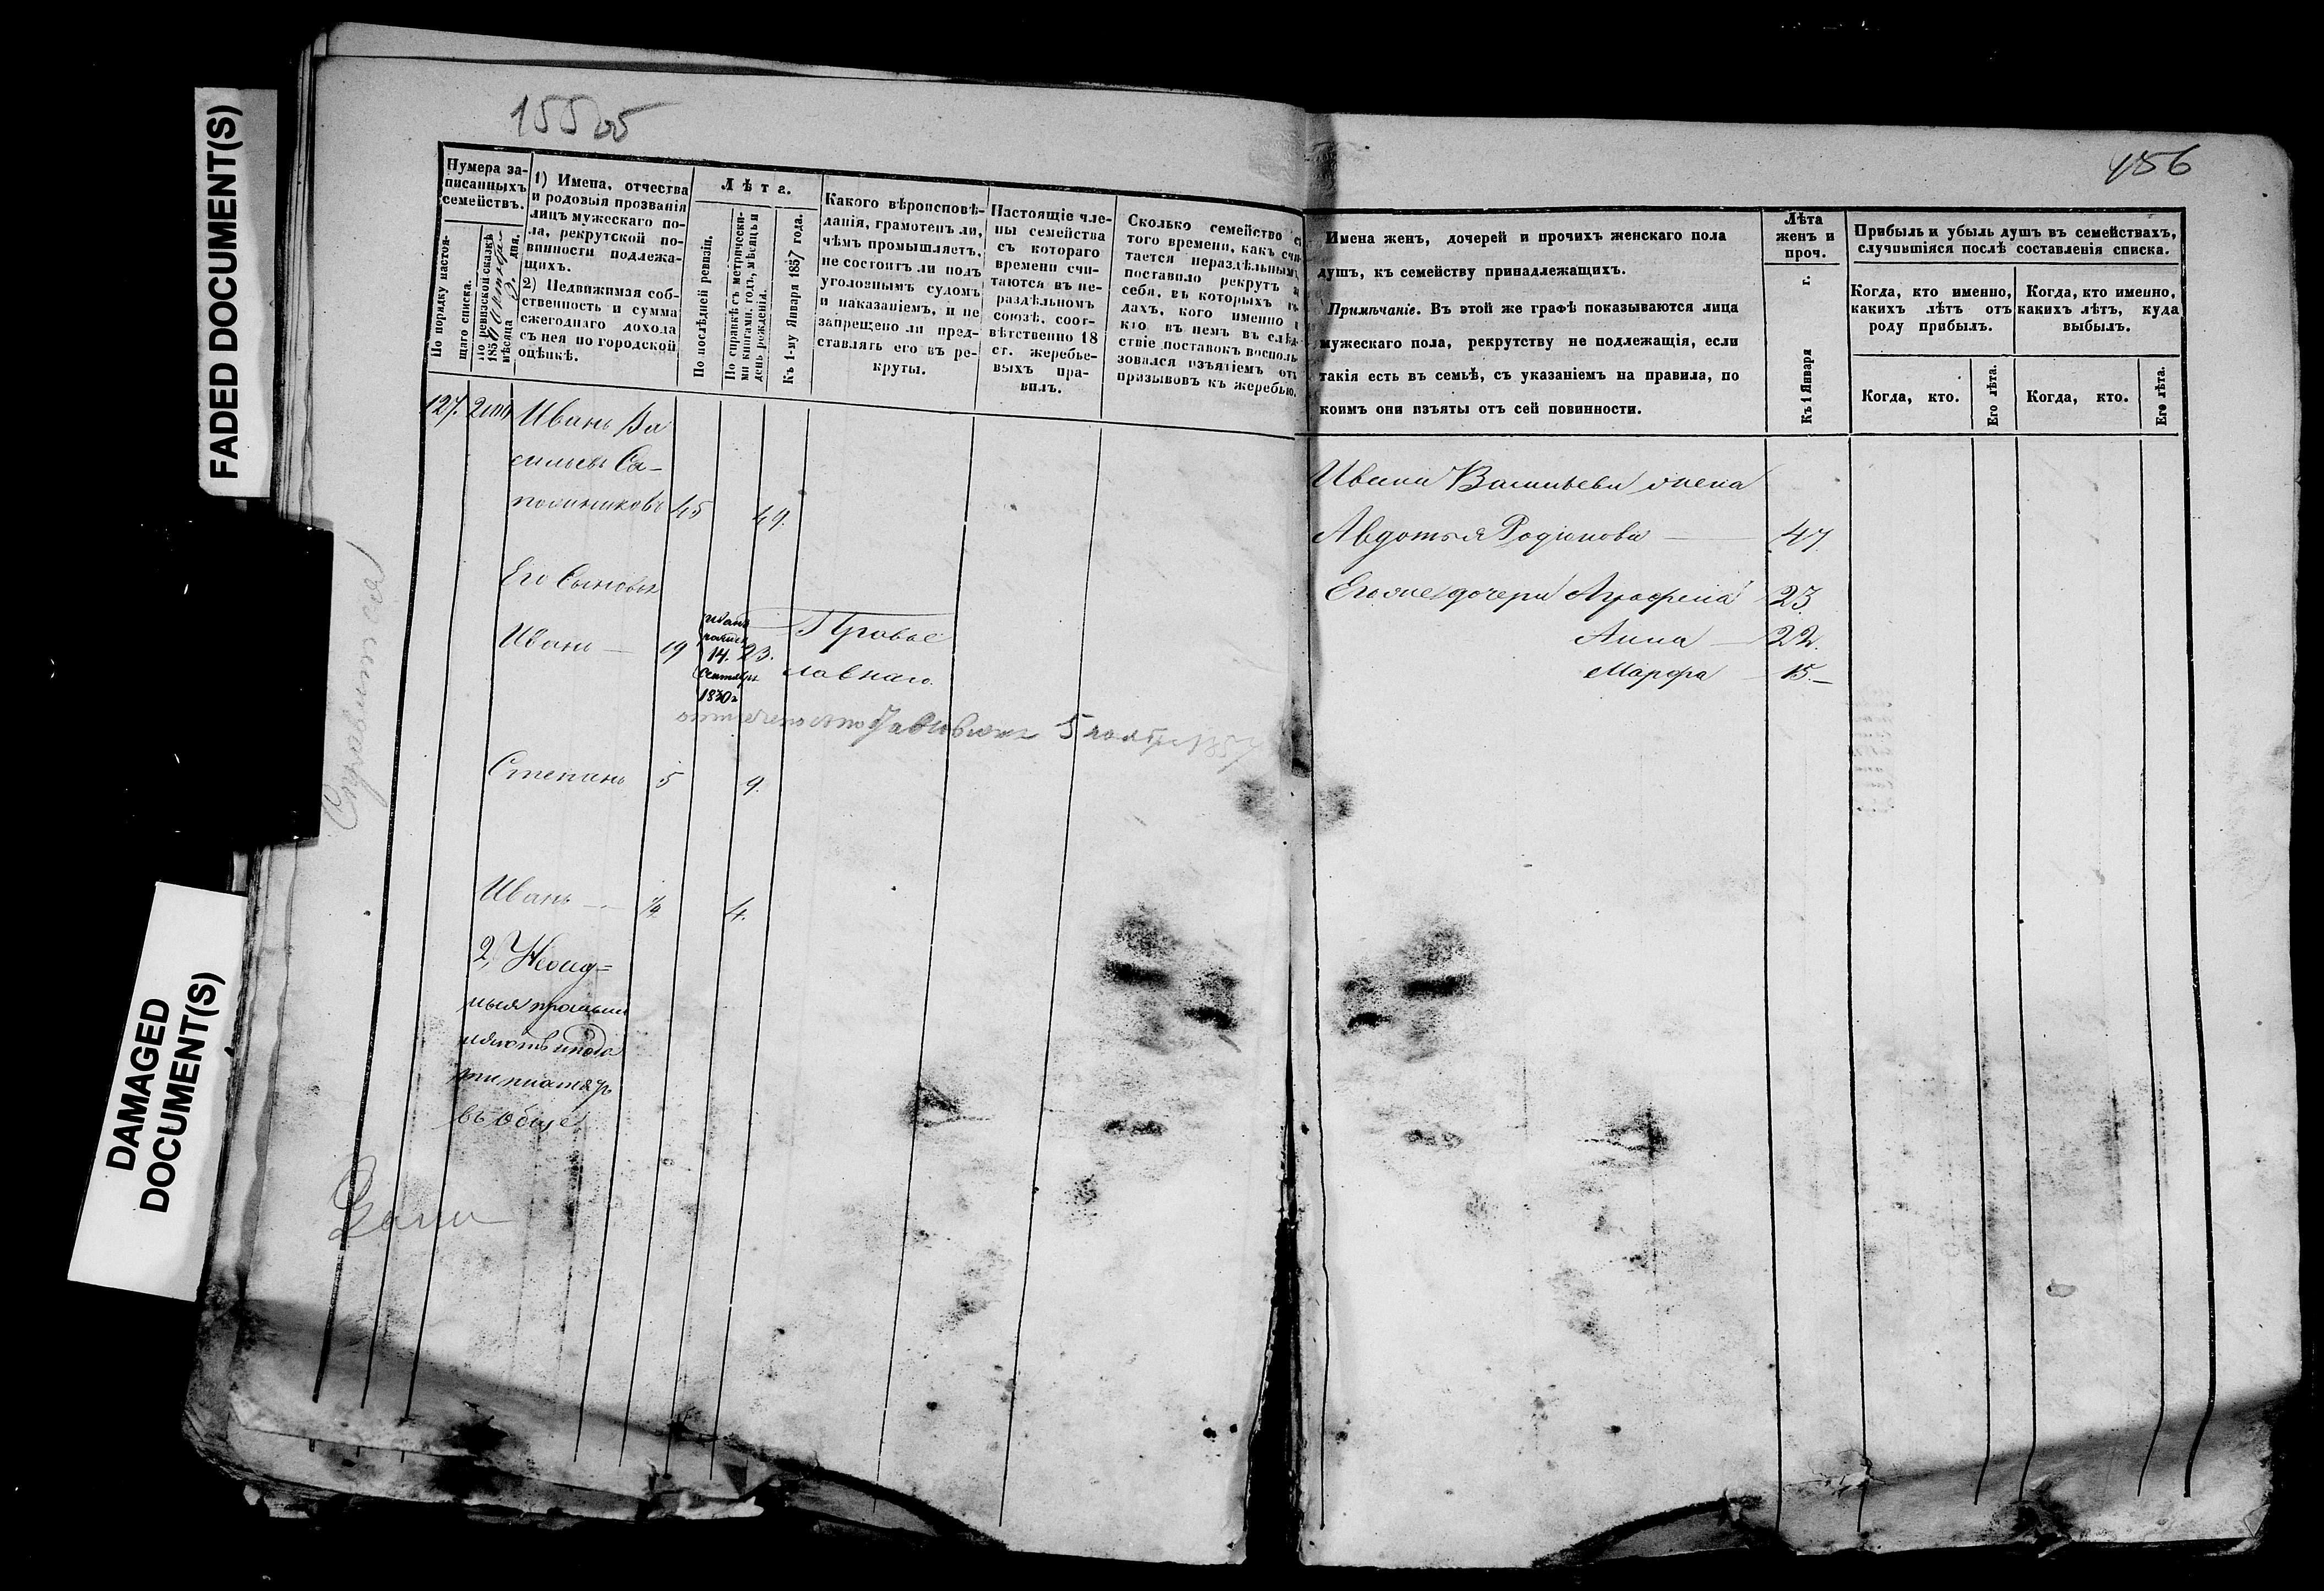 FADED DOCUMENT(S)
DAMAGED
DOCUMENT(S)
155
Нумера за-
писанныхъ
семействъ.
По порядку настоя-
щаго списка.
По ревизской сказкѣ
185 Октября
мѣсяца дня.
1) Имена, отчества
и родовыя прозванія
лицъ мужескаго по-
ла, рекрутской по-
винности подлежа-
щихъ.
2) Недвижимая соб-
ственность и сумма
ежегоднаго дохода
съ нея по городской
оцѣнкѣ.
Лѣта.
По послѣдней ревизіи.
По справкѣ съ метрически-
ми книгами, годъ, мѣсяцъ и
день рожденія.
Къ 1-му Января 1857 года.
Какого вѣроисповѣ-
данія, грамотенъ ли,
чѣмъ промышляетъ,
не состоитъ ли подъ
уголовнымъ судомъ
и наказаніемъ, и не
запрещено ли пред-
ставлять его въ ре-
круты.
Настоящіе чле-
ны семейства
съ котораго
времени счи-
таются въ не-
раздѣльномъ
союзѣ, соот-
вѣтственно 18
ст. жеребье-
выхъ пра-
вилъ.
Сколько семейство съ
того времени, какъ счи-
тается нераздѣльнымъ
поставило рекрутъ за
себя, въ которыхъ го-
дахъ, кого именно и
кто въ немъ въ слѣд-
ствіе поставокъ восполь-
зовался изъятіемъ отъ
призывовъ къ жеребью.
127.
Иванъ Ва
сильевъ Са-
пожниковъ 45 49.
Его Сыновья
Иванъ — 19
14.
Сентября
1830г
23.
Правос
лавнаго.
5 1857
Степанъ 5 9.
Иванъ — ½ 4.
2,
въ обще
156
Имена женъ, дочерей и прочихъ женскаго пола
душъ, къ семейству принадлежащихъ.
Примѣчаніе. Въ этой же графѣ показываются лица
мужескаго пола, рекрутству не подлежащія, если
такія есть въ семьѣ, съ указаніемъ на правила, по
коимъ они изъяты отъ сей повинности.
Лѣта
женъ и
проч.
Къ 1 Января г.
Прибыль и убыль душъ въ семействахъ,
случившіяся послѣ составленія списка.
Когда, кто именно,
какихъ лѣтъ отъ
роду прибылъ.
Когда, кто именно,
какихъ лѣтъ, куда
выбылъ.
Когда, кто.
Его лѣта.
Когда, кто.
Его лѣта.
Ивана Васильева жена
Авдотья Родіонова — 47
Его же дочери Аграфена 23.
Анна — 22.
Марфа 15.—